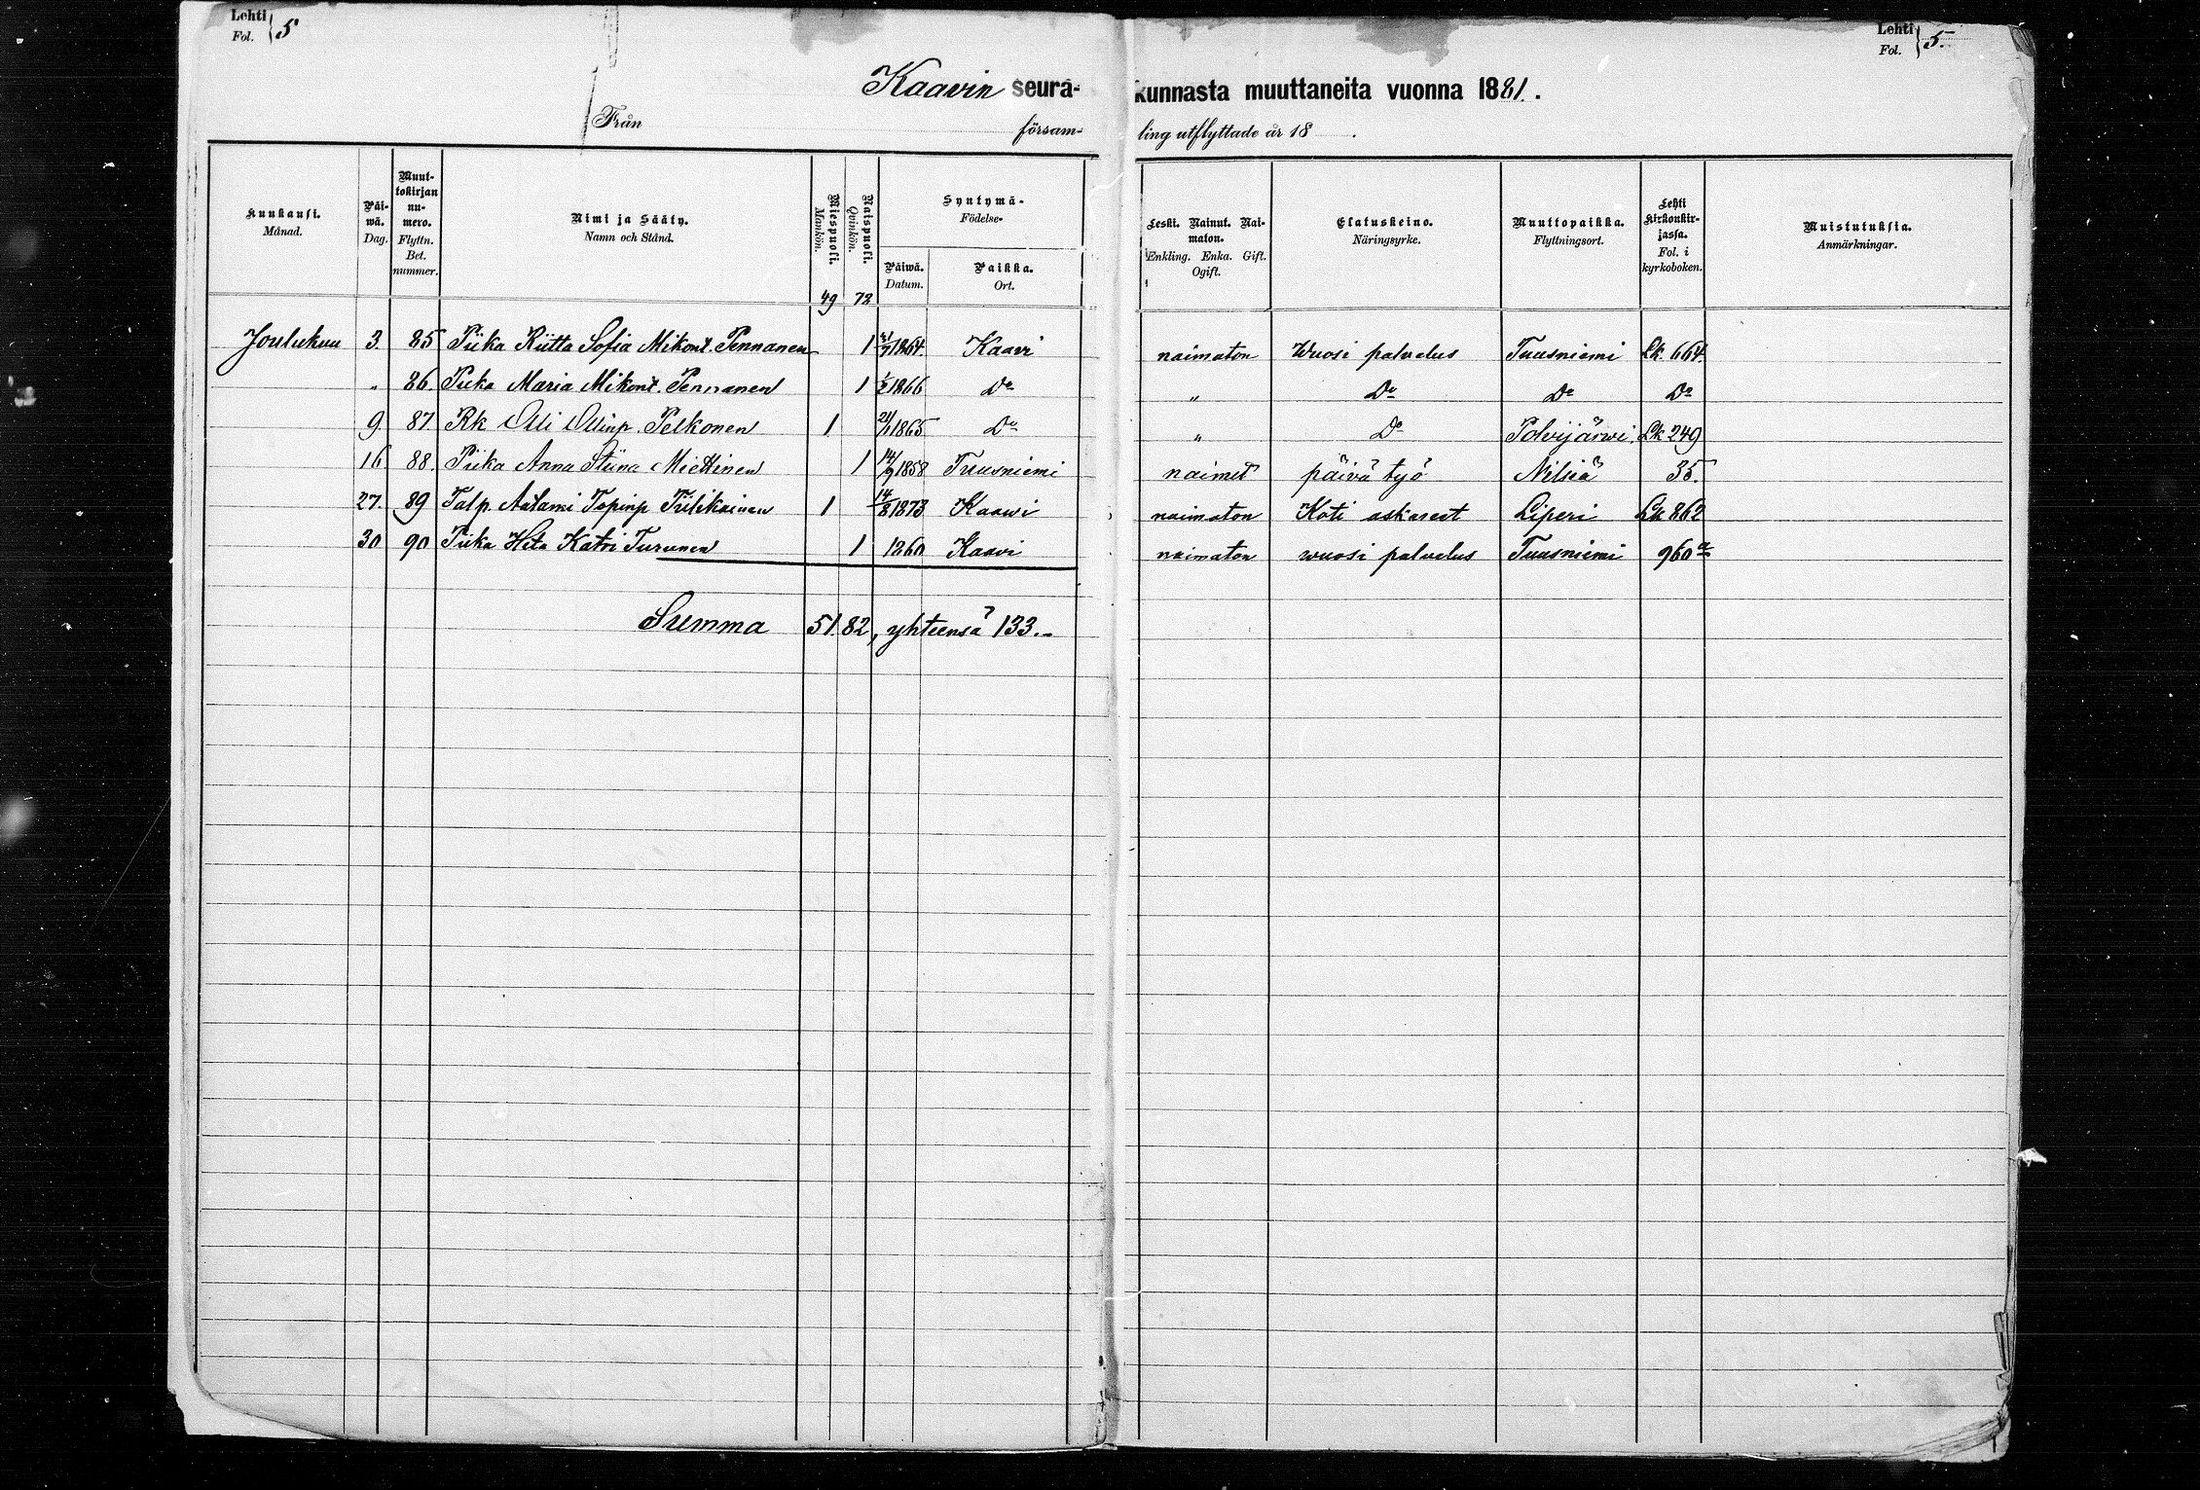 Lehti Fol. } 5
Lehti Fol. } 5.
Kaavin seura- kunnasta muuttaneita vuonna 1881.
Från församling utflyttade år 18 .
Kuukausi. Månad.
Päiwä. Dag.
Muuttokirjan numero. Flyttn. Bet. nummer.
Nimi ja Sääty. Namn och Stånd.
Miespuoli. Mankön.
Naispuoli. Qvinkön.
Syntymä- Födelse-
Päiwä. Datum.
Paikka. Ort.
Leski. Nainut. Naimaton. Enkling. Enka. Gift. Ogift.
Elatuskeino. Näringsyrke.
Muuttopaikka. Flyttningsort.
Lehti kirkonkirjassa. Fol. i kyrkoboken.
Muistutuksia. Anmärkningar.
49 72
Joulukuu 3. 85 Piika Riitta Sofia Mikont. Pennanen 1 1864. Kaavi naimaton Wuosi palvelus Tuusniemi Lk. 664.
„ 86. Piika Maria Mikont. Pennanen 1 1866 Do „ Do Do Do
9. 87 Rk Olli Ollinp. Pelkonen 1 1865 Do „ Do Polvijärwi Lk 249
16 88. Piika Anna Stiina Miettinen 1 14/9 1858 Tuusniemi naimat päivä työ Nilsiä 35.
27. 89 Talp. Aatami Topinp Tiilikainen 1 14/8 1873 Kaawi naimaton Koti askareet Liperi Lk 862
30 90 Piika Heta Katri Turunen 1 1860 Kaavi naimaton wuosi palvelus Tuusniemi 960
Summa 51. 82, yhteensä 133.-